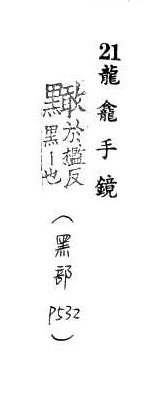 21龍龕手鏡
於檻反
黑丨也
(黑部P532)